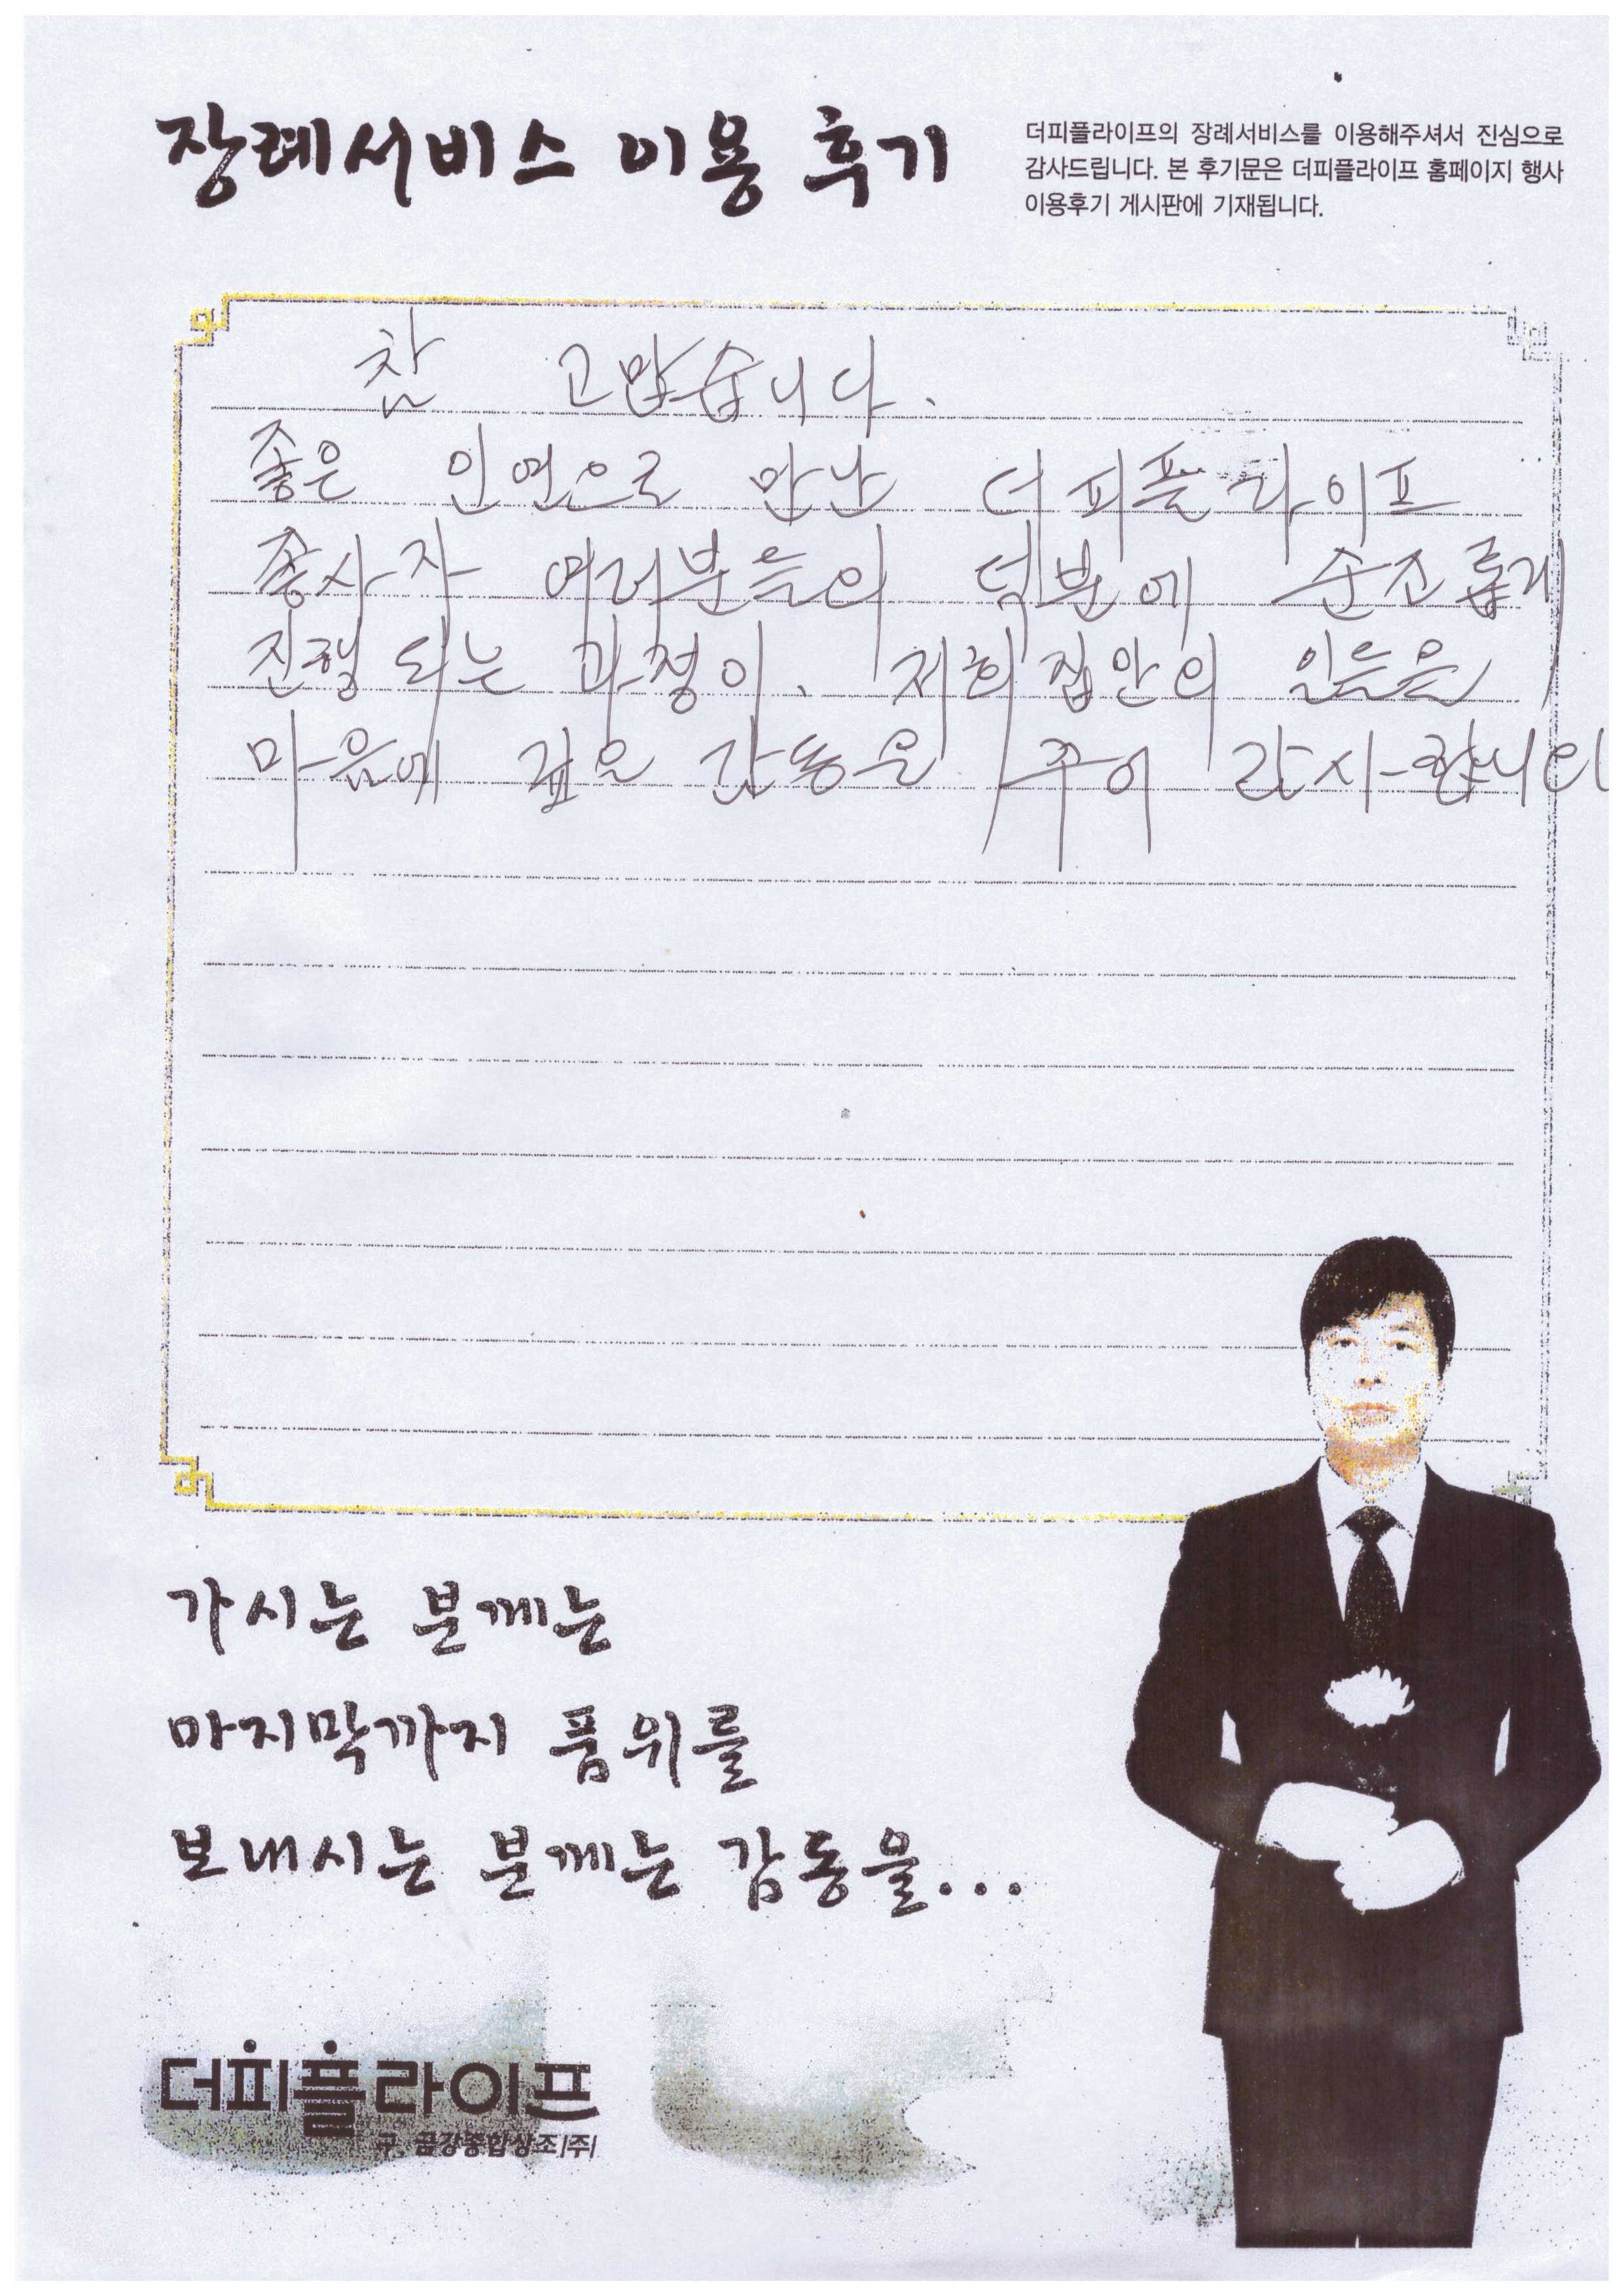 장례서비스 이용 후기
더피플라이프의 장례서비스를 이용해주셔서 진심으로
감사드립니다. 본 후기문은 더피플라이프 홈페이지 행사
이용후기 게시판에 기재됩니다.
참 고맙습니다.
좋은 인연으로 만난 더피플라이프
종사자 여러분들의 덕분에 순조롭게
진행 되는 과정이. 저희 집안의
마음에 깊은 감동을 주어
가시는 분께는
마지막까지 품위를
보내시는 분께는 감동을...
더피플라이프
구. 금강종합상조(주)